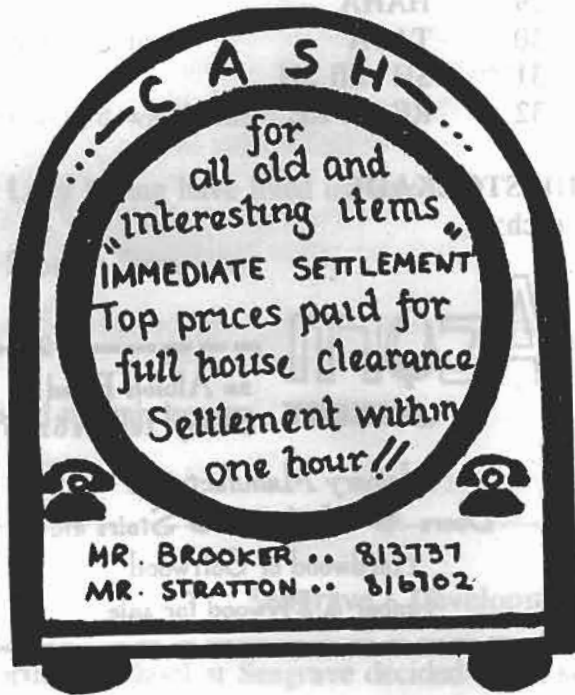 CASH
for
all old and
"interesting items"
IMMEDIATE SETTLEMENT
Top prices paid for
full house clearance
Settlement within
one hour!!
MR. BROOKER .. 813737
MR. STRATTON .. 816702